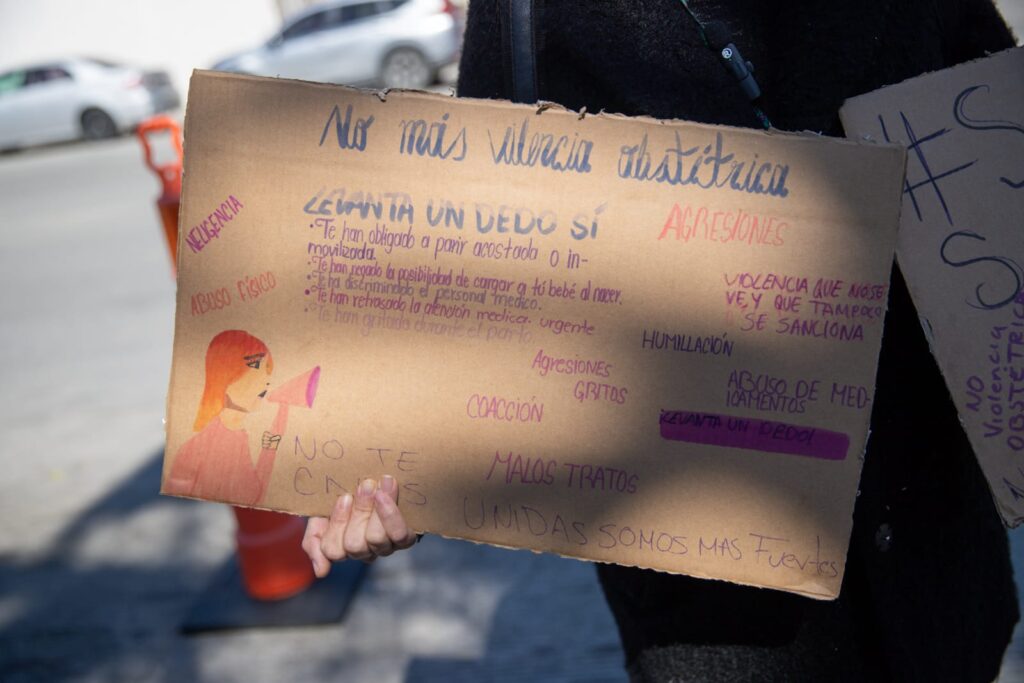 No más violencia obstétrica
NELIGENCIA
LEVANTA UN DEDO SÍ
AGRESIONES
• Te han obligado a parir acostada o in-
movilizada.
• Te han negado la posibilidad de cargar a tú bebé al nacer.
• Te ha discriminado el personal medico.
• Te han retrasado la atención medica urgente
• Te han gritado durante el parto.
ABUSO FÍSICO
VIOLENCIA QUE NO SE
VE, Y QUE TAMPOCO
SE SANCIONA
HUMILLACIÓN
Agresiones
GRITOS
ABUSO DE MED-
ICAMENTOS
COACCIÓN
¡LEVANTA UN DEDO!
NO TE
CALLES
MALOS TRATOS
UNIDAS SOMOS MAS Fuertes
#S
S
NO
Violencia
OBSTÉTRICA